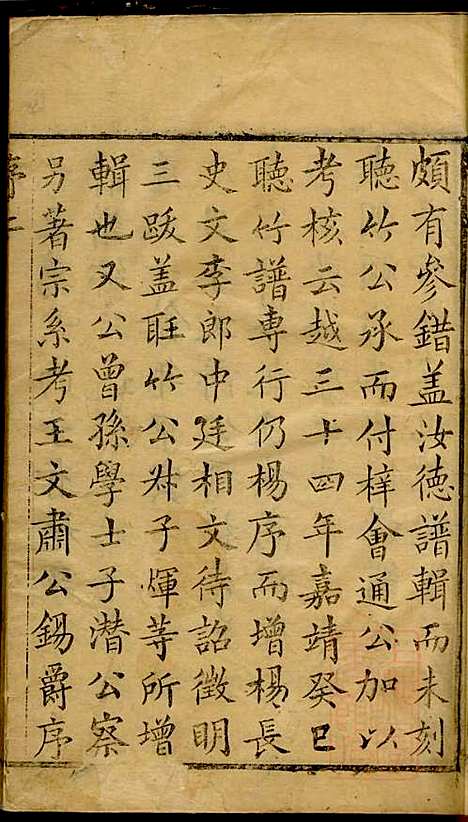 頗有參錯盖汝德譜輯而未刻
聽竹公承而付梓會通公加以
考核云越三十四年嘉靖癸巳
聽竹譜專行仍楊序而增楊長
史文李郎中廷相文待詔徵明
三跋盖聽竹公𠦑子煇等所增
輯也又公曾孫學士子潛公察
另著宗系考王文肅公錫爵序
序二